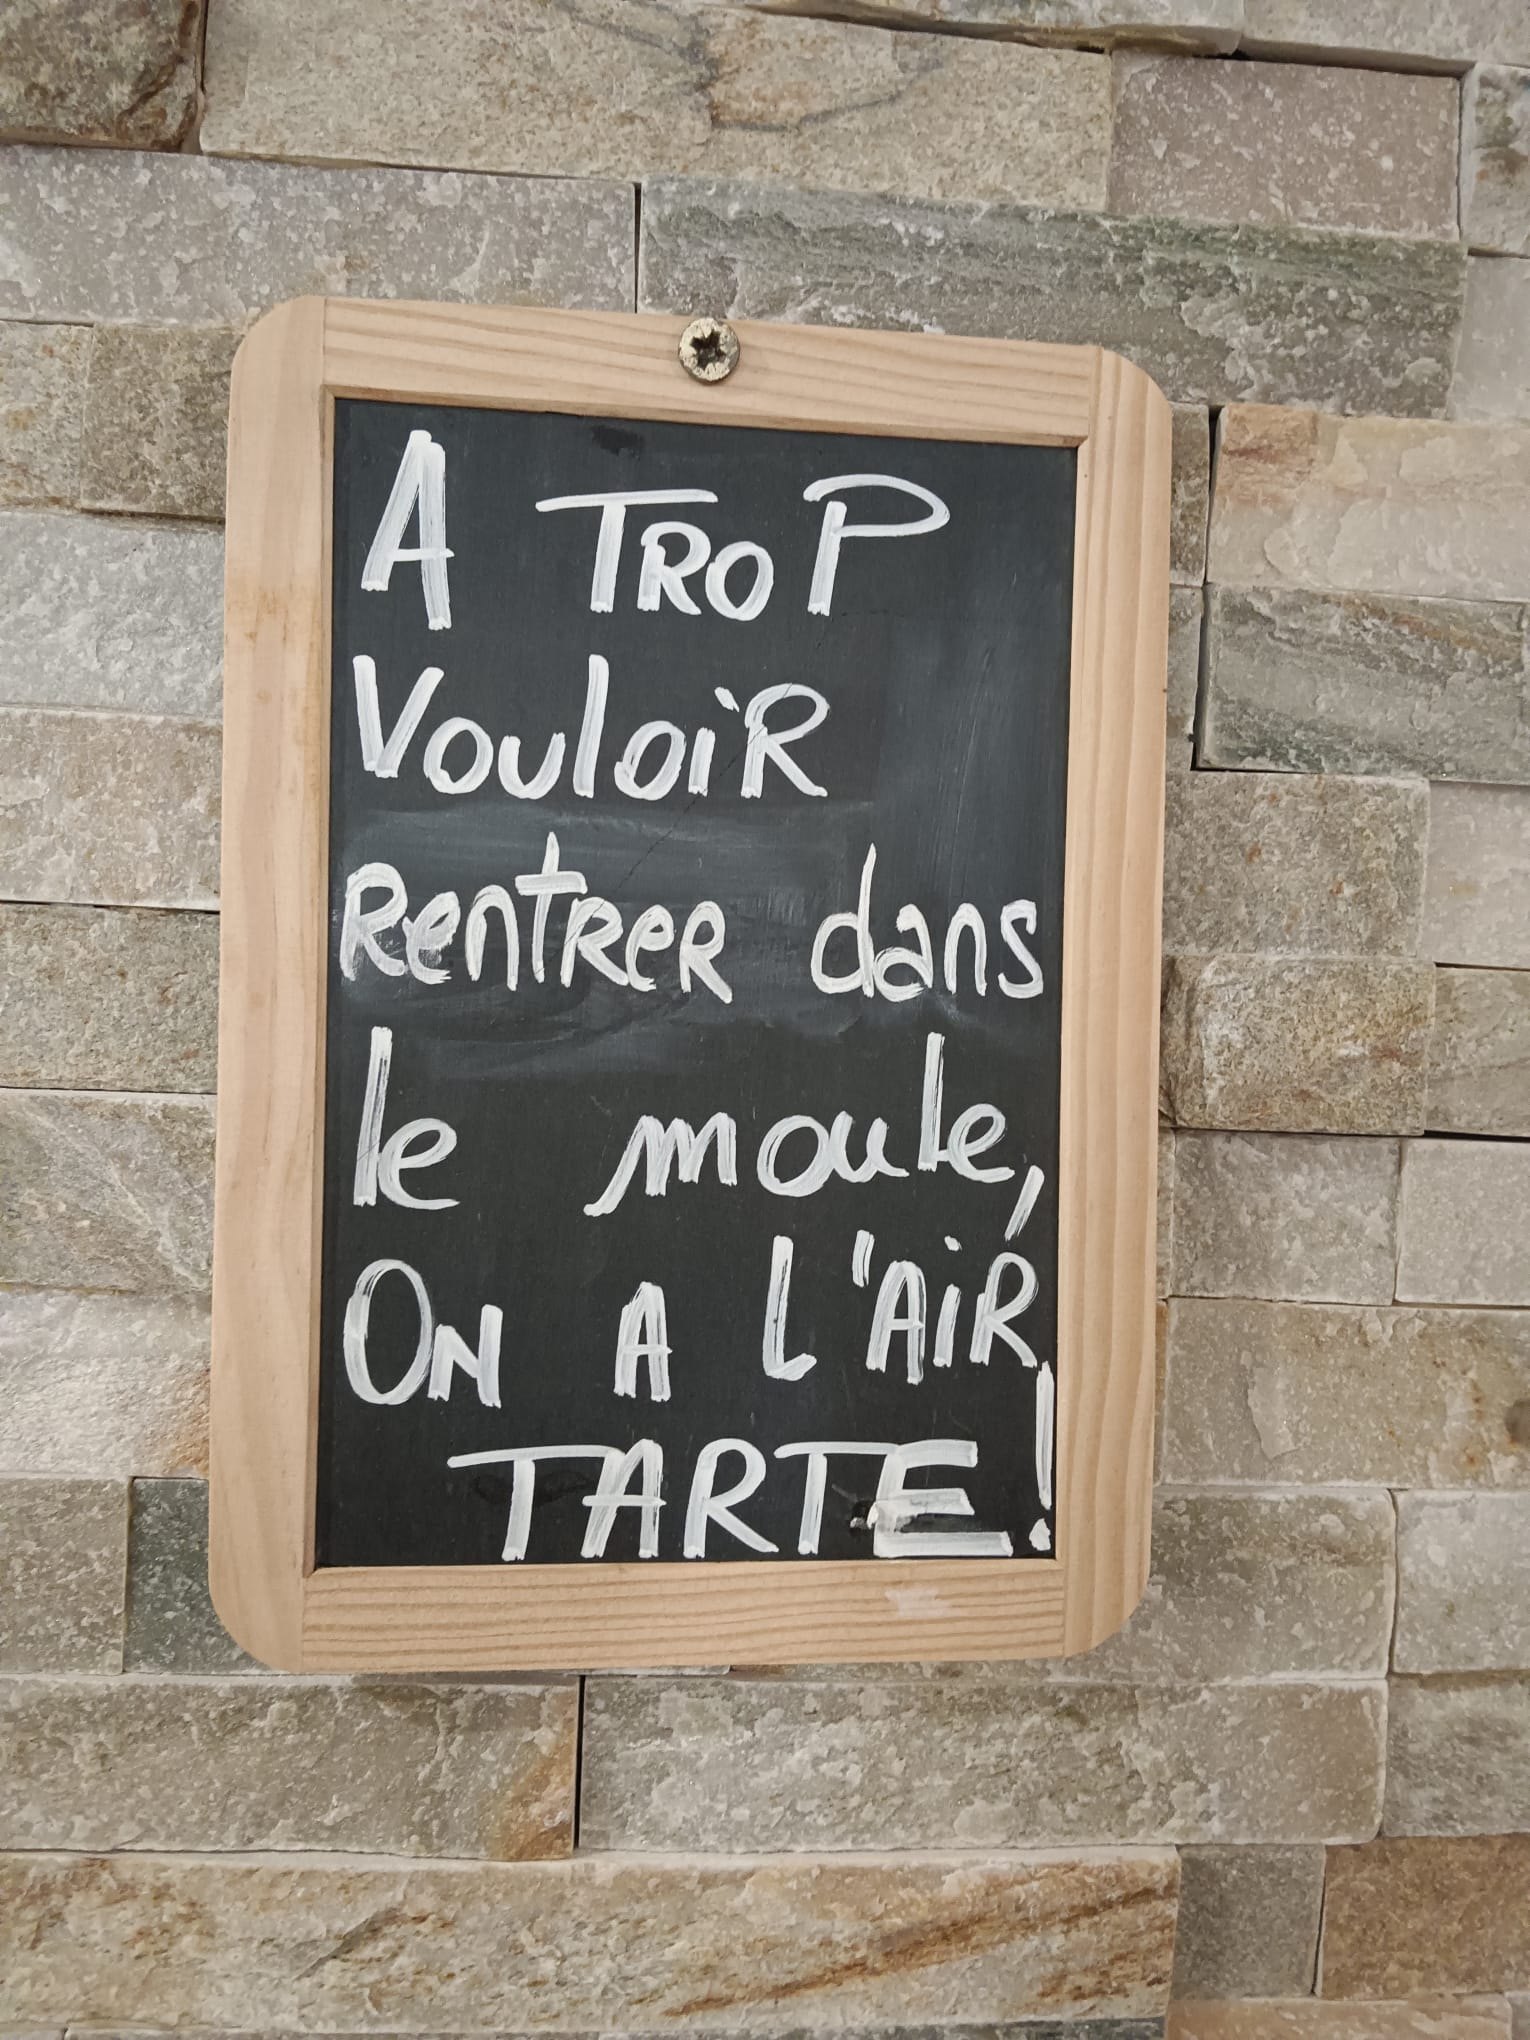 A TROP
VOULOIR
RENTRER dans
le moule,
ON A L'AIR
TARTE!